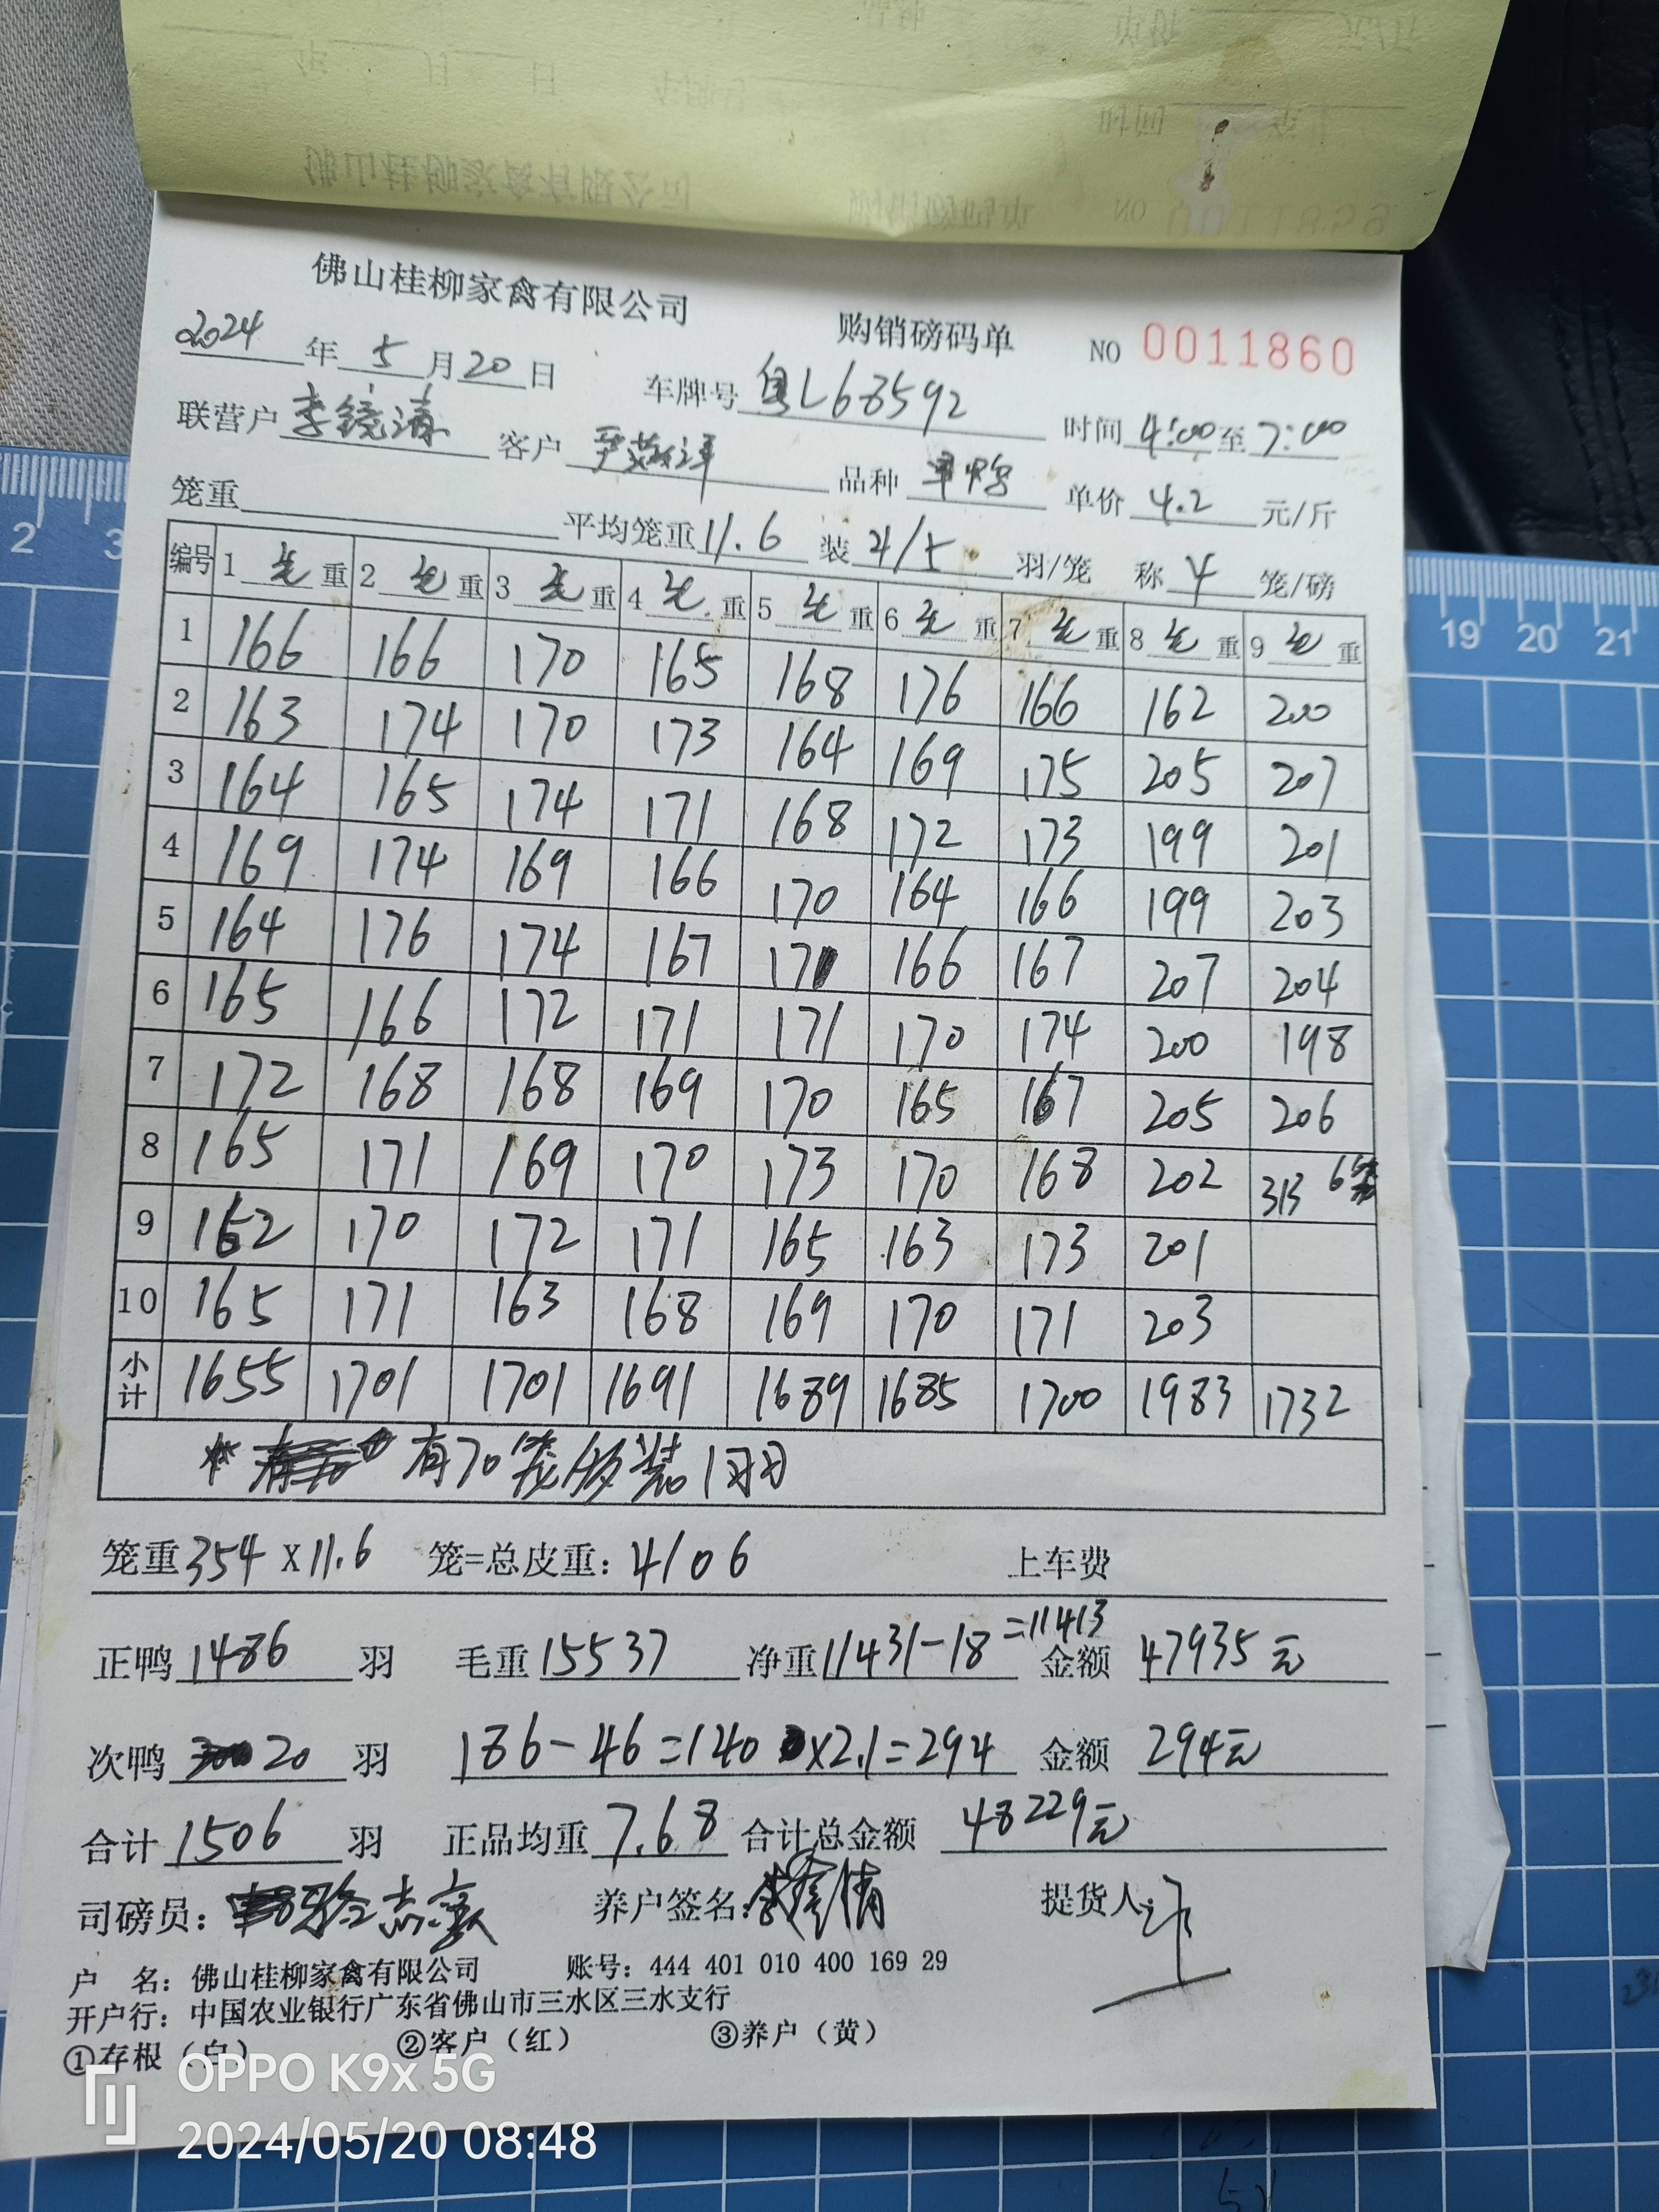 佛山桂柳家禽有限公司 购销磅码单 NO 0011860
2024年5月20日 车牌号 粤L68592 时间 4:00至7:00
联营户 李镜清 客户 品种 单价 4.2 元/斤
笼重 平均笼重 11.6 装 4/5 羽/笼 称 4 笼/磅
编号 1 毛重 2 毛重 3 毛重 4 毛重 5 毛重 6 毛重 7 毛重 8 毛重 9 毛重
1 166 166 170 165 168 176 166 162 200
2 163 174 170 173 164 169 175 205 207
3 164 165 174 171 168 172 173 199 201
4 169 174 169 166 170 164 166 199 203
5 164 176 174 167 171 166 167 207 204
6 165 166 172 171 171 170 174 200 198
7 172 168 168 169 170 165 167 205 206
8 165 171 169 170 173 170 168 202 313 6笼
9 162 170 172 171 165 163 173 201
10 165 171 163 168 169 170 171 203
小计 1655 1701 1701 1691 1689 1685 1700 1983 1732
有70笼多装1羽
笼重 354 X 11.6 笼=总皮重: 4106 上车费
正鸭 1486 羽 毛重 15537 净重 11431-18=11413 金额 47935元
次鸭 20 羽 186-46=140 x2.1=294 金额 294元
合计 1506 羽 正品均重 7.68 合计总金额 48229元
司磅员: 养户签名: 提货人:
户 名: 佛山桂柳家禽有限公司 账号: 444 401 010 400 169 29
开户行: 中国农业银行广东省佛山市三水区三水支行
①存根（白） ②客户（红） ③养户（黄）
OPPO K9x 5G
2024/05/20 08:48
2 3
19 20 21